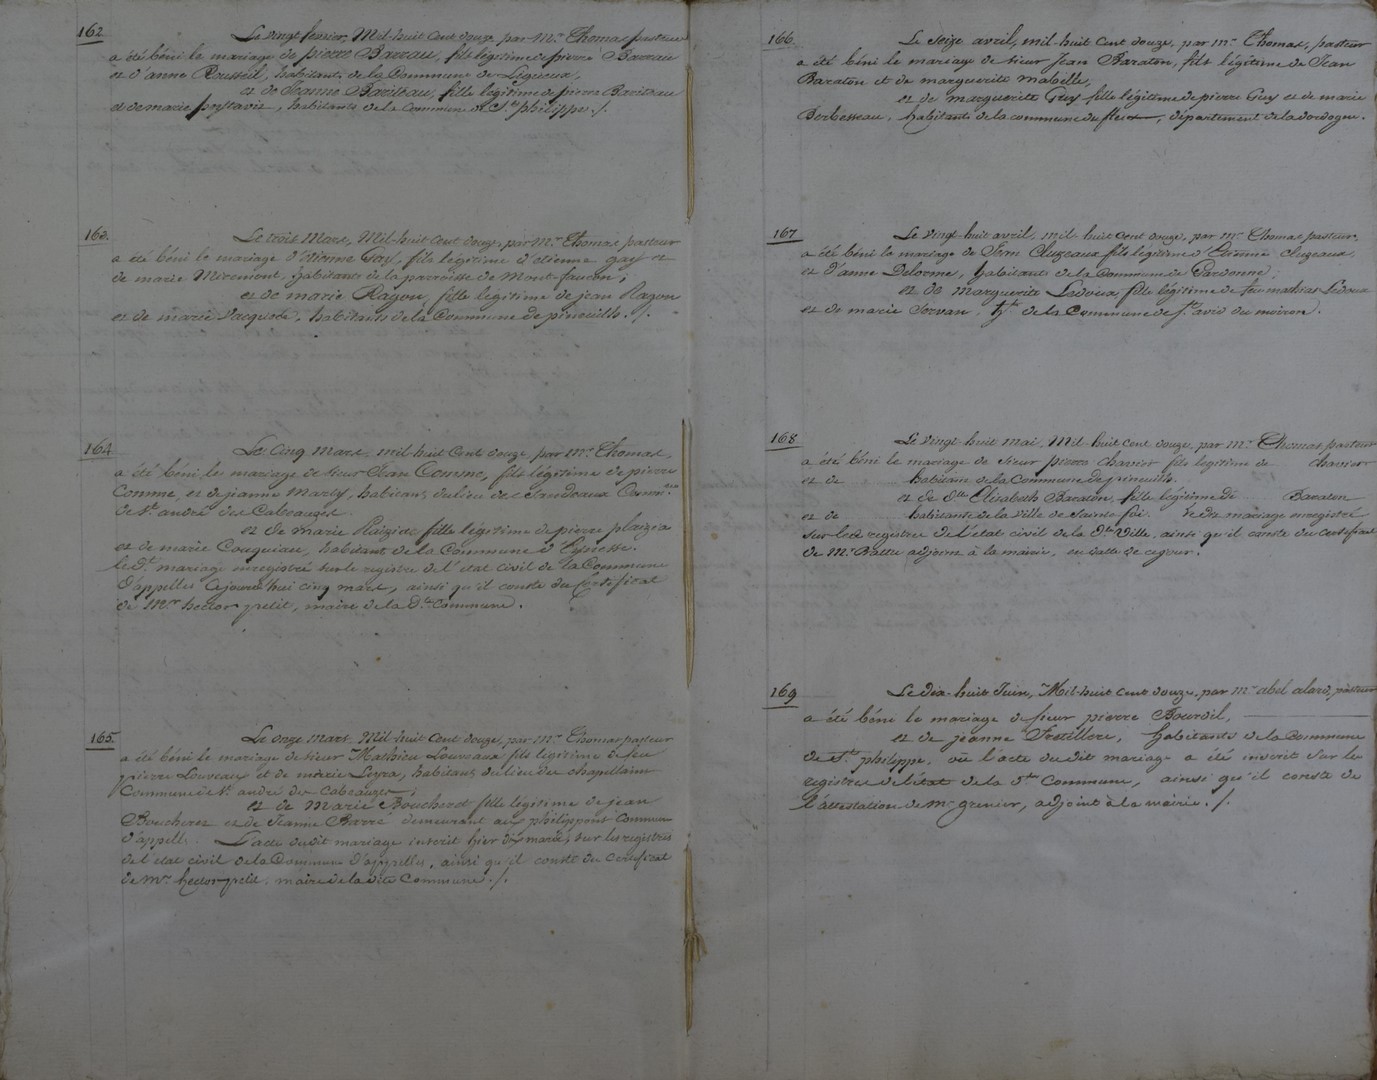 162.
Le vingt fevrier, Mil-huit Cent douze, par Mr. Thomas pasteur
a été béni le mariage de pierre Barreau, fils légitime de pierre Barreau
et d'anne Rousseil, habitants de la Commune de Ligueux,
et de Jeanne Bariteau, fille légitime de pierre Bariteau
et de marie, habitants de la Commune de St. philippe. /.
163.
Le trois Mars, Mil-huit Cent douze, par Mr. Thomas pasteur
a été béni le mariage d'etienne Gay, fils légitime d'etienne gay et
de marie Miremont, habitants de la parroisse de Mont-faucon;
et de marie Ragon, fille légitime de jean Ragon
et de marie Jacquede, habitants de la Commune de pineuilh. /.
164
Le Cinq Mars, mil-huit Cent douze, par Mr. Thomas,
a été béni, le mariage de sieur Jean Comme, fils légitime de pierre
Comme, et de jeanne Marty, habitans du lieu des
de St. andré de Cabeauge.
et de marie Plaiziac fille légitime de pierre plaizia
et de marie Couguiau, habitant de la Commune d'Eynesse.
le dt. mariage enregistré sur le registre de l'etat civil de la Commune
d'appelles Cejourd'hui cinq mars, ainsi qu'il conste du Certificat
de Mr. hector petit, maire de la dte. Commune.
165.
Le onze mars, Mil-huit Cent douze, par Mr. Thomas pasteur
a été béni le mariage de sieur Mathieu Louveaux fils légitime de feu
pierre Louveaux et de marie Leyra, habitans du lieu des chapellains
Commune de St. andré de Cabeauges;
et de Marie Boucheret fille légitime de jean
Boucheret et de Jeanne Barré demeurant aux philippons Commune
d'appelles. L'acte du dit mariage inscrit hier dix mars, sur les registres
de l'etat civil de la Commune d'appelles, ainsi qu'il conste du certificat
de Mr. hector petit, maire de la dite Commune. /.
166.
Le Seize avril, mil-huit Cent douze, par mr. Thomas, pasteur
a été béni le mariage de sieur Jean Baraton, fils légitime de Jean
Baraton et de marguerite mabille,
et de marguerite Guy fille légitime de pierre Guy et de marie
Berbesseau, habitants de la commune du fleix, département de la dordogne.
167
Le vingt-huit avril, mil-huit Cent douze, par mr. Thomas pasteur,
a été béni le mariage de Jean Cluzeaux fils légitime d'Etienne Cluzeaux,
et d'anne Delorme, habitans de la Commune de Gardonne;
et de Marguerite Ledoux, fille légitime de feu mathias Ledoux
et de marie Servan, hts. de la Commune de St. avid du moiron.
168
Le vingt-huit mai, Mil-huit Cent douze, par mr. Thomas pasteur
a été béni le mariage de Sieur pierre chavier fils légitime de chavier
et de habitans de la Commune de pineuilh.
et de dlle Elisabeth Baraton, fille légitime de Baraton
et de habitants de la Ville de Sainte-foi. le dt. mariage enregistré
sur les registres de l'etat civil de la dte. Ville, ainsi qu'il conste du certificat
de Mr. Battu adjoint à la mairie, en datte de ce jour.
169
Le dix-huit Juin, Mil-huit Cent douze, par mr. abel alard, pasteur
a été béni le mariage de sieur pierre Bourdil,
et de jeanne Fretillere, habitants de la Commune
de St. philippe, où l'acte du dit mariage a été inscrit sur les
registres de l'état de la dte. Commune, ainsi qu'il conste de
l'attestation de mr. grenier, adjoint à la mairie. /.